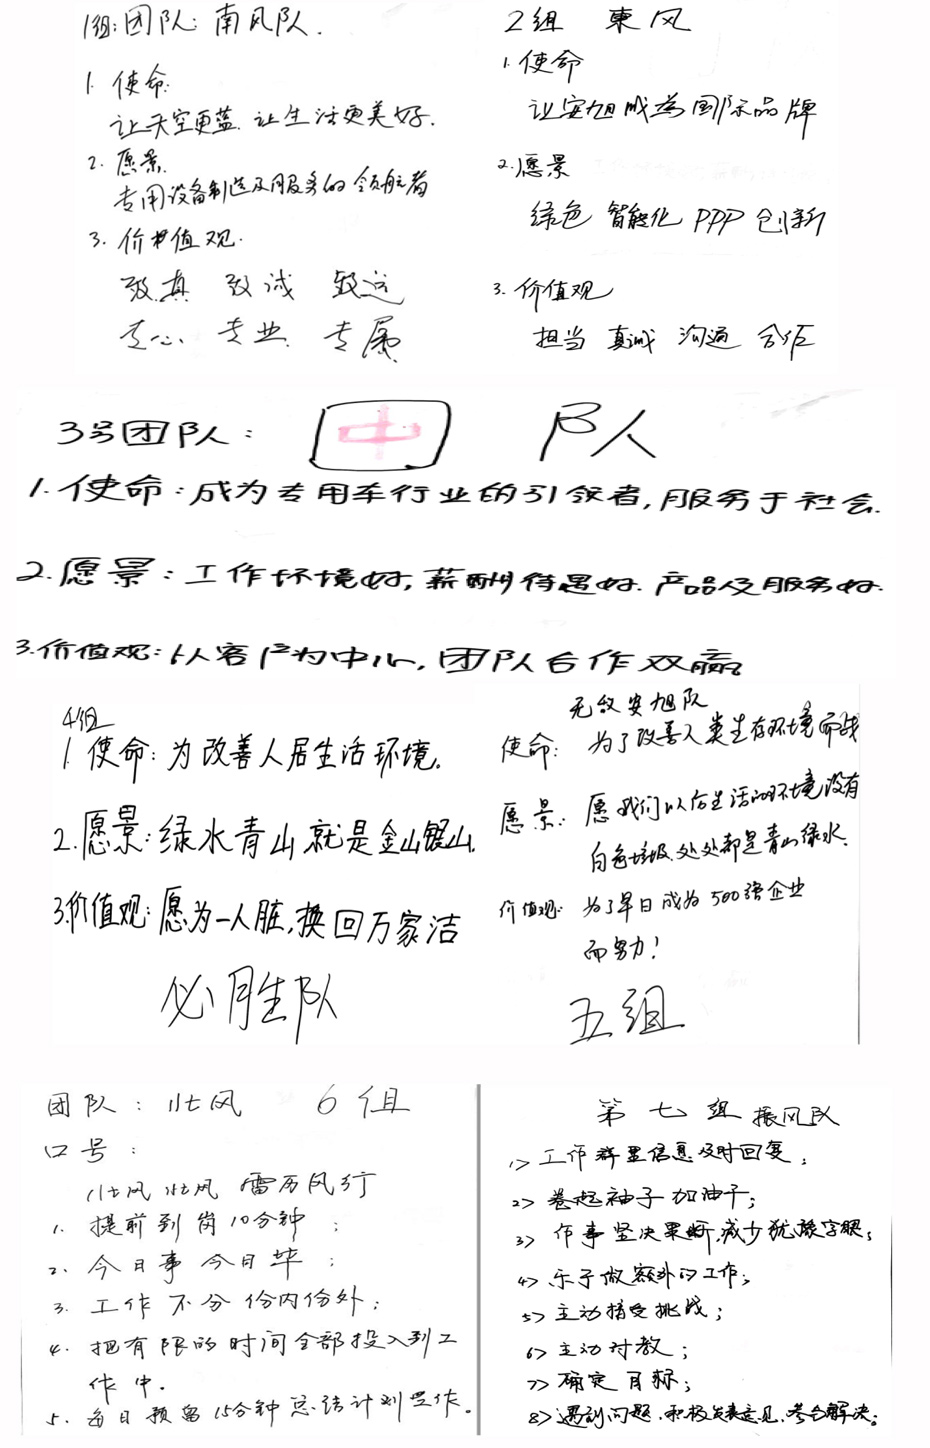 1组:团队:南风队.
1. 使命:
让天空更蓝 让生活更美好.
2. 愿景.
专用设备制造及服务的领航者
3. 价值观.
致真 致诚 致远
专心 专业 专属
2组 東风
1. 使命
让安旭成为国际品牌
2. 愿景
绿色 智能化 PPP 创新
3. 价值观
担当 真诚 沟通 合作
3号团队: 中 队
1. 使命:成为专用车行业的引领者,服务于社会.
2. 愿景:工作环境好,薪酬待遇好.产品及服务好.
3. 价值观:以客户为中心,团队合作双赢
4组
1. 使命:为改善人居生活环境.
2. 愿景:绿水青山就是金山银山.
3. 价值观:愿为一人脏,换回万家洁
必胜队
无敌安旭队
使命: 为了改善人类生存环境而战
愿景: 愿我们以后生活的环境没有
白色垃圾.处处都是青山绿水.
价值观: 为了早日成为500强企业
而努力!
五组
团队:北风 6组
口号:
北风 北风 雷厉风行
1. 提前到岗10分钟;
2. 今日事今日毕;
3. 工作不分份内份外;
4. 把有限的时间全部投入到工
作中.
5. 每日预留15分钟总结计划工作。
第七组 振风队
1> 工作群里信息及时回复;
2> 卷起袖子加油干;
3> 作事坚决果断,减少犹豫字眼;
4> 乐于做额外的工作;
5> 主动接受挑战;
6> 主动讨教;
7> 确定目标;
8> 遇到问题.积极发表意见.考台解决。